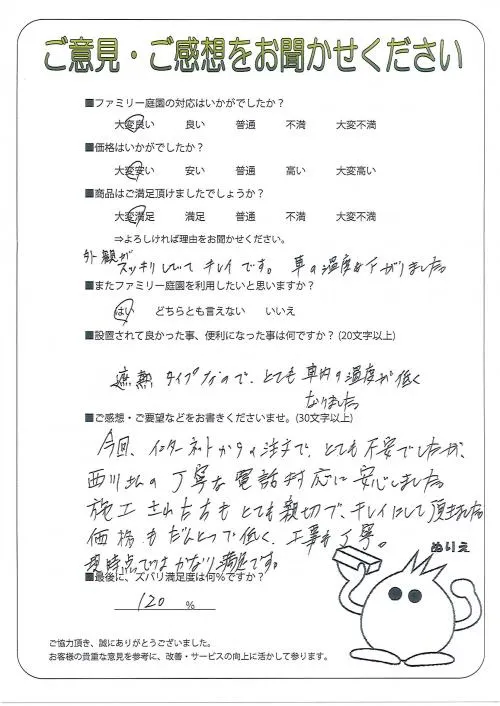 ご意見・ご感想をお聞かせください
■ファミリー庭園の対応はいかがでしたか？
大変良い 良い 普通 不満 大変不満
■価格はいかがでしたか？
大変安い 安い 普通 高い 大変高い
■商品はご満足頂けましたでしょうか？
大変満足 満足 普通 不満 大変不満
⇒よろしければ理由をお聞かせください。
外観が
スッキリしていて キレイです。 車の温度も下がりました
■またファミリー庭園を利用したいと思いますか？
はい どちらとも言えない いいえ
■設置されて良かった事、便利になった事は何ですか？(20文字以上)
遮熱タイプなので、とても車内の温度が低く
なりました
■ご感想・ご要望などをお書きくださいませ。(30文字以上)
今回、インターネットからの注文で、とても不安でしたが、
西川さんの丁寧な電話対応に安心しました
施工された方もとても親切で、キレイにして頂きました
価格もだんとつで低く、工事も丁寧。
現時点ではかなり満足です。
ぬりえ
■最後に、ズバリ満足度は何％ですか？
120 ％
ご協力頂き、誠にありがとうございました。
お客様の貴重な意見を参考に、改善・サービスの向上に活かして参ります。